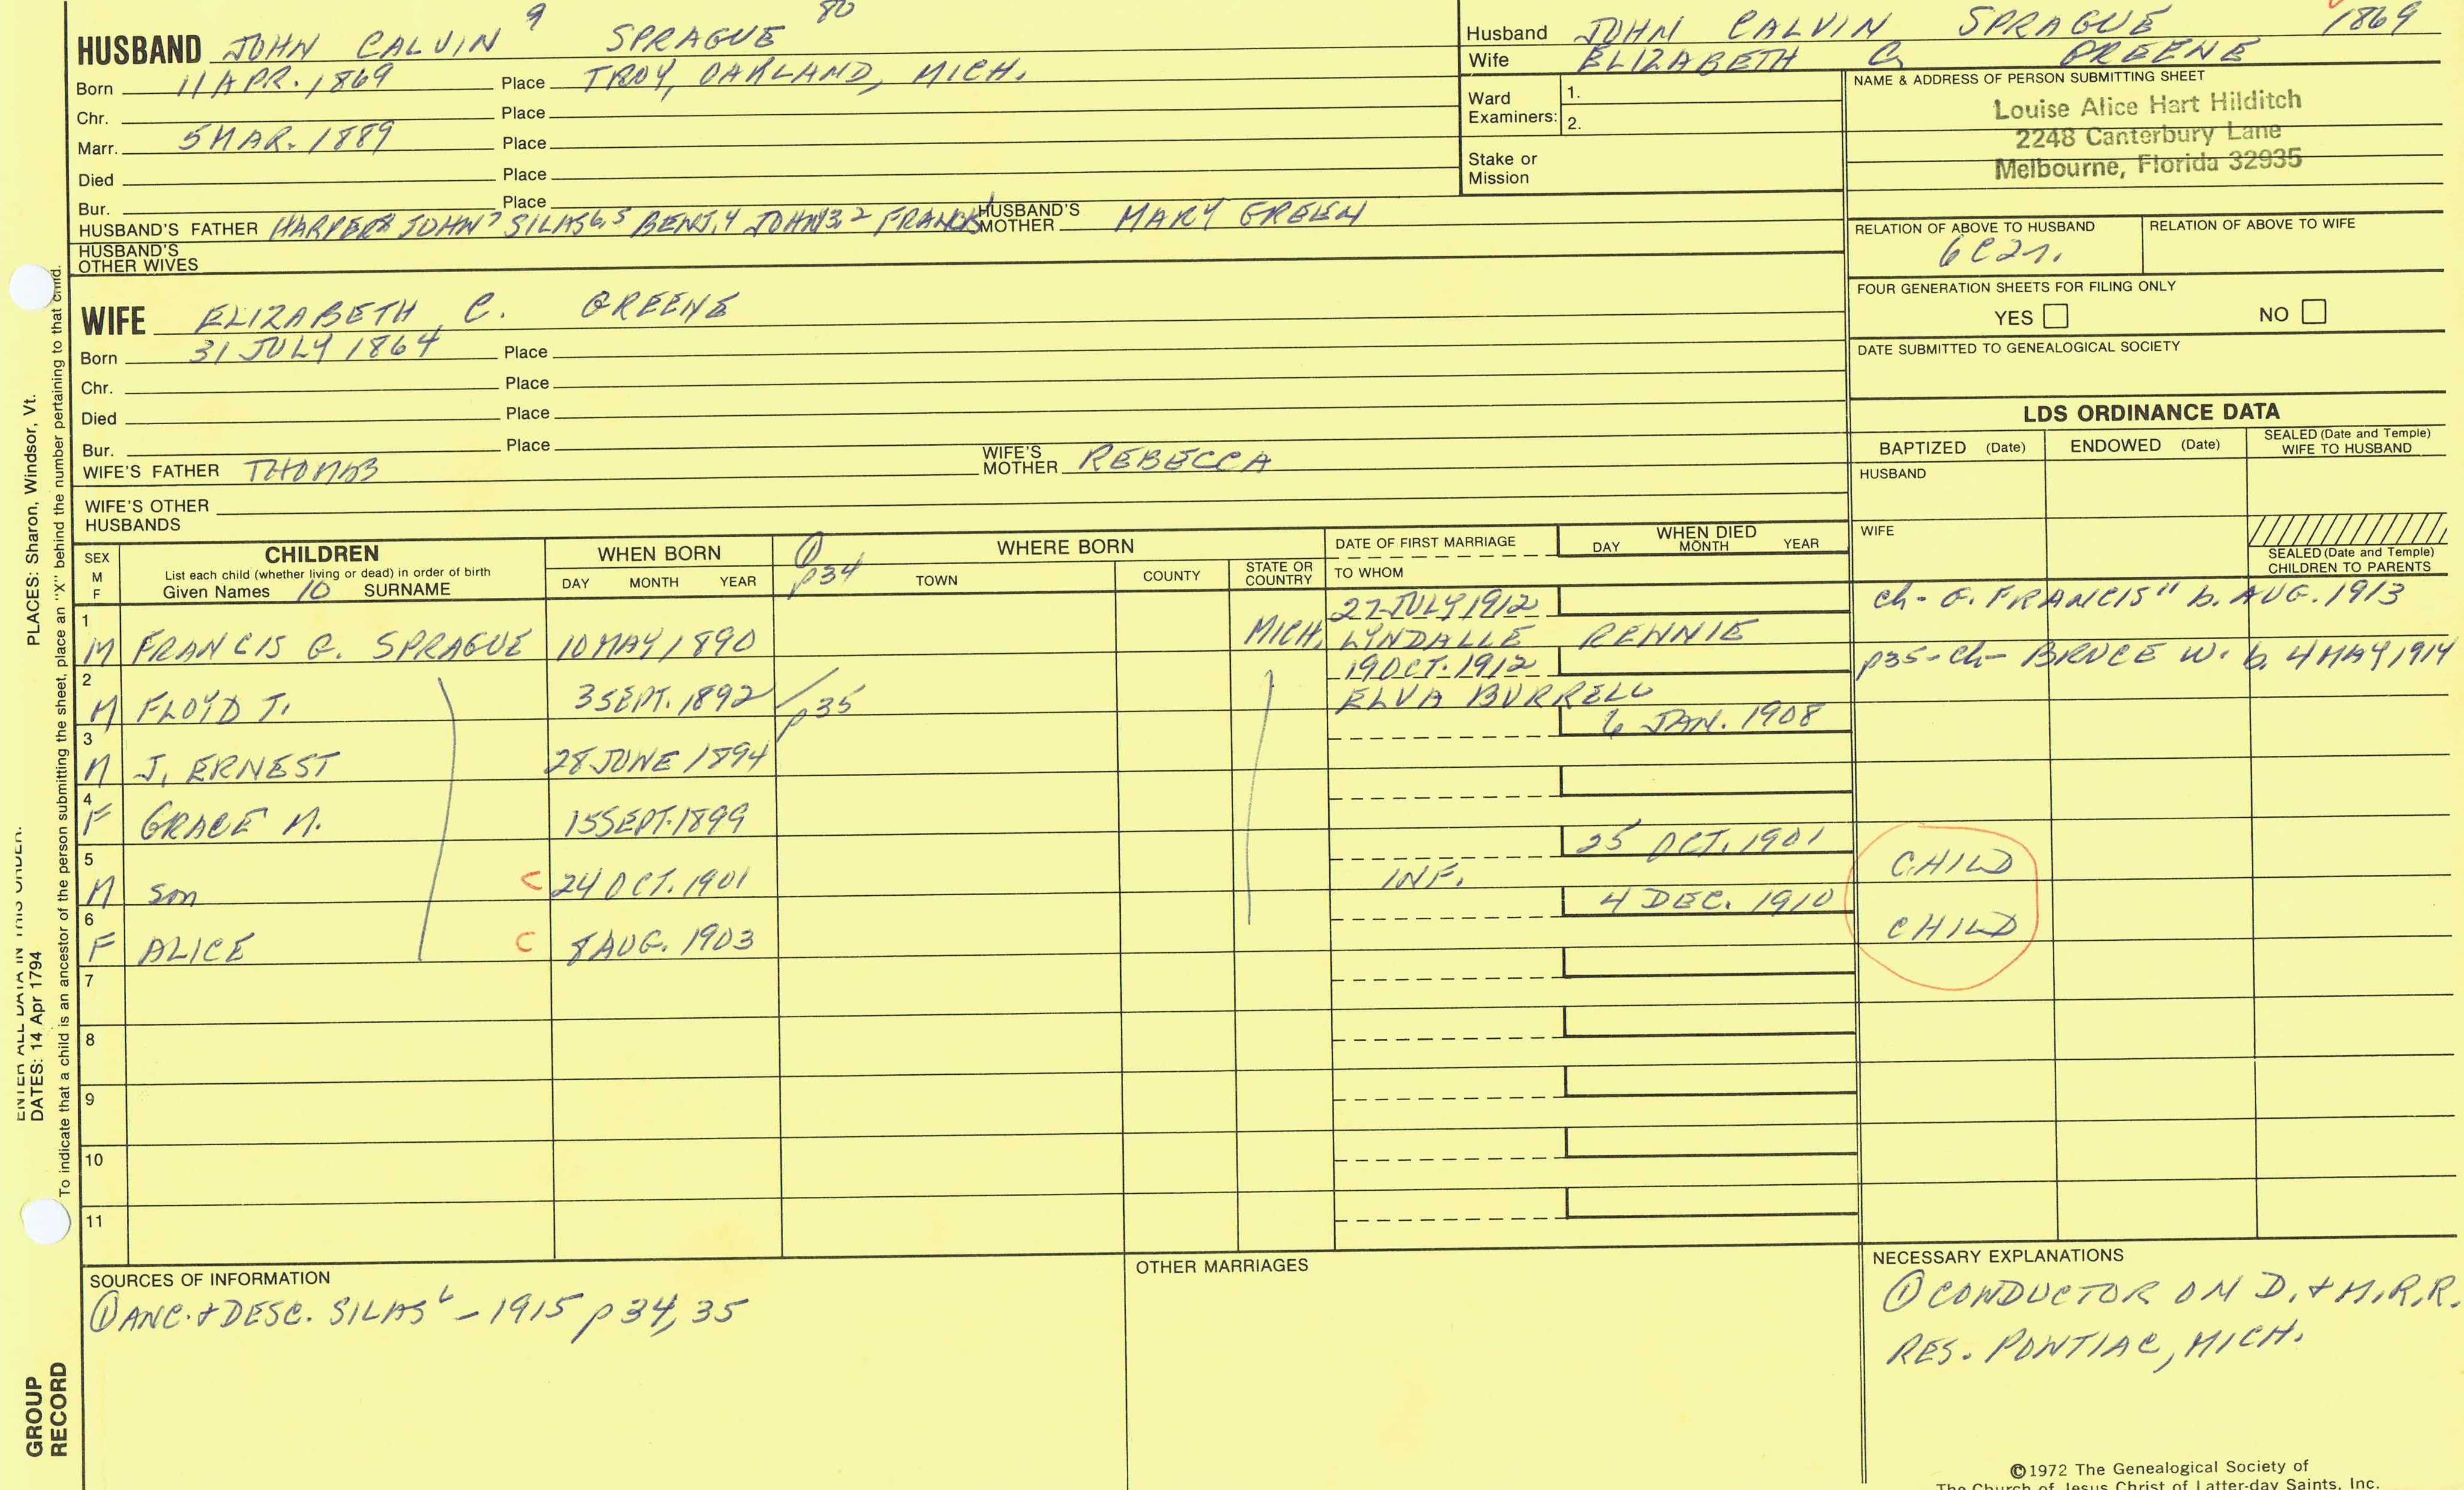 HUSBAND JOHN CALVIN 9 SPRAGUE 80
Born 11 APR. 1869 Place TROY, OAKLAND, MICH.
Chr. Place
Marr. 5 MAR. 1889 Place
Died Place
Bur. Place
HUSBAND'S FATHER HARPER8 JOHN7 SILAS6,5 BENJ.4 JOHN3,2 FRANCIS1 HUSBAND'S MOTHER MARY GREEN
HUSBAND'S OTHER WIVES
WIFE ELIZABETH C. GREENE
Born 31 JULY 1864 Place
Chr. Place
Died Place
Bur. Place
WIFE'S FATHER THOMAS WIFE'S MOTHER REBECCA
WIFE'S OTHER HUSBANDS
Husband JOHN CALVIN SPRAGUE 1869
Wife ELIZABETH C. GREENE
Ward Examiners: 1.
2.
Stake or Mission
NAME & ADDRESS OF PERSON SUBMITTING SHEET
Louise Alice Hart Hilditch
2248 Canterbury Lane
Melbourne, Florida 32935
RELATION OF ABOVE TO HUSBAND RELATION OF ABOVE TO WIFE
6C2r.
FOUR GENERATION SHEETS FOR FILING ONLY
YES NO
DATE SUBMITTED TO GENEALOGICAL SOCIETY
LDS ORDINANCE DATA
BAPTIZED (Date) ENDOWED (Date) SEALED (Date and Temple) WIFE TO HUSBAND
HUSBAND
WIFE
SEALED (Date and Temple) CHILDREN TO PARENTS
SEX M F
CHILDREN
List each child (whether living or dead) in order of birth
Given Names 10 SURNAME
WHEN BORN
DAY MONTH YEAR
① p34
WHERE BORN
TOWN COUNTY STATE OR COUNTRY
DATE OF FIRST MARRIAGE
TO WHOM
WHEN DIED
DAY MONTH YEAR
1 27 JULY 1912 ch- G. FRANCIS11 b. AUG. 1913
M FRANCIS G. SPRAGUE 10 MAY 1890 MICH. LYNDALLE RENNIE
2 19 OCT. 1912 p35-ch- BRUCE W. b. 4 MAY 1914
M FLOYD J. 3 SEPT. 1892 p35 ELVA BURRELL
3 6 JAN. 1908
M J. ERNEST 28 JUNE 1894
4
F GRACE M. 15 SEPT. 1899
5 25 OCT. 1901 CHILD
M son C 24 OCT. 1901 INF.
6 4 DEC. 1910 CHILD
F ALICE C 8 AUG. 1903
7
8
9
10
11
SOURCES OF INFORMATION
① ANC. & DESC. SILAS6 - 1915 p 34, 35
OTHER MARRIAGES
NECESSARY EXPLANATIONS
① CONDUCTOR ON D. & M. R.R.
RES. PONTIAC, MICH.
©1972 The Genealogical Society of
The Church of Jesus Christ of Latter-day Saints, Inc.
ENTER ALL DATA IN THIS ORDER:
DATES: 14 Apr 1794
PLACES: Sharon, Windsor, Vt.
To indicate that a child is an ancestor of the person submitting the sheet, place an "X" behind the number pertaining to that child.
GROUP
RECORD